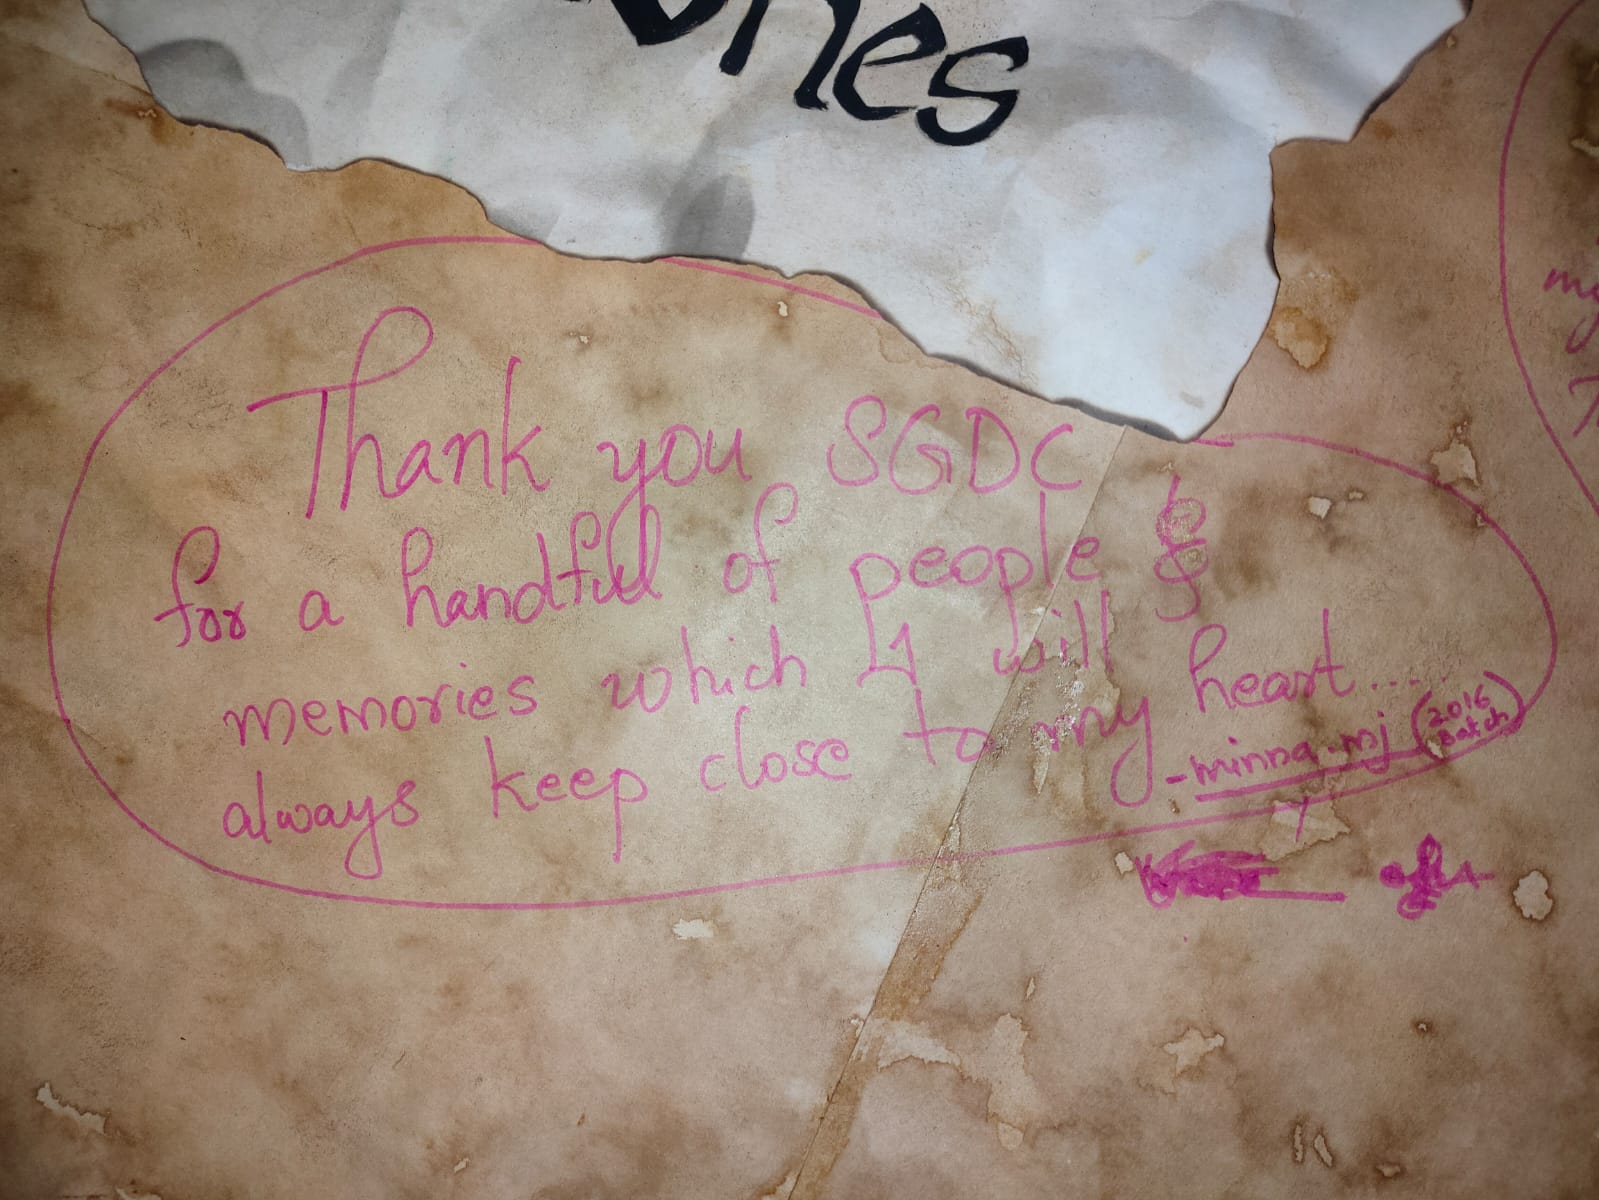 ones
Thank you SGDC
for a handful of people &
memories which I will
always keep close to my heart....
- minna.mj (2016
Batch)
my